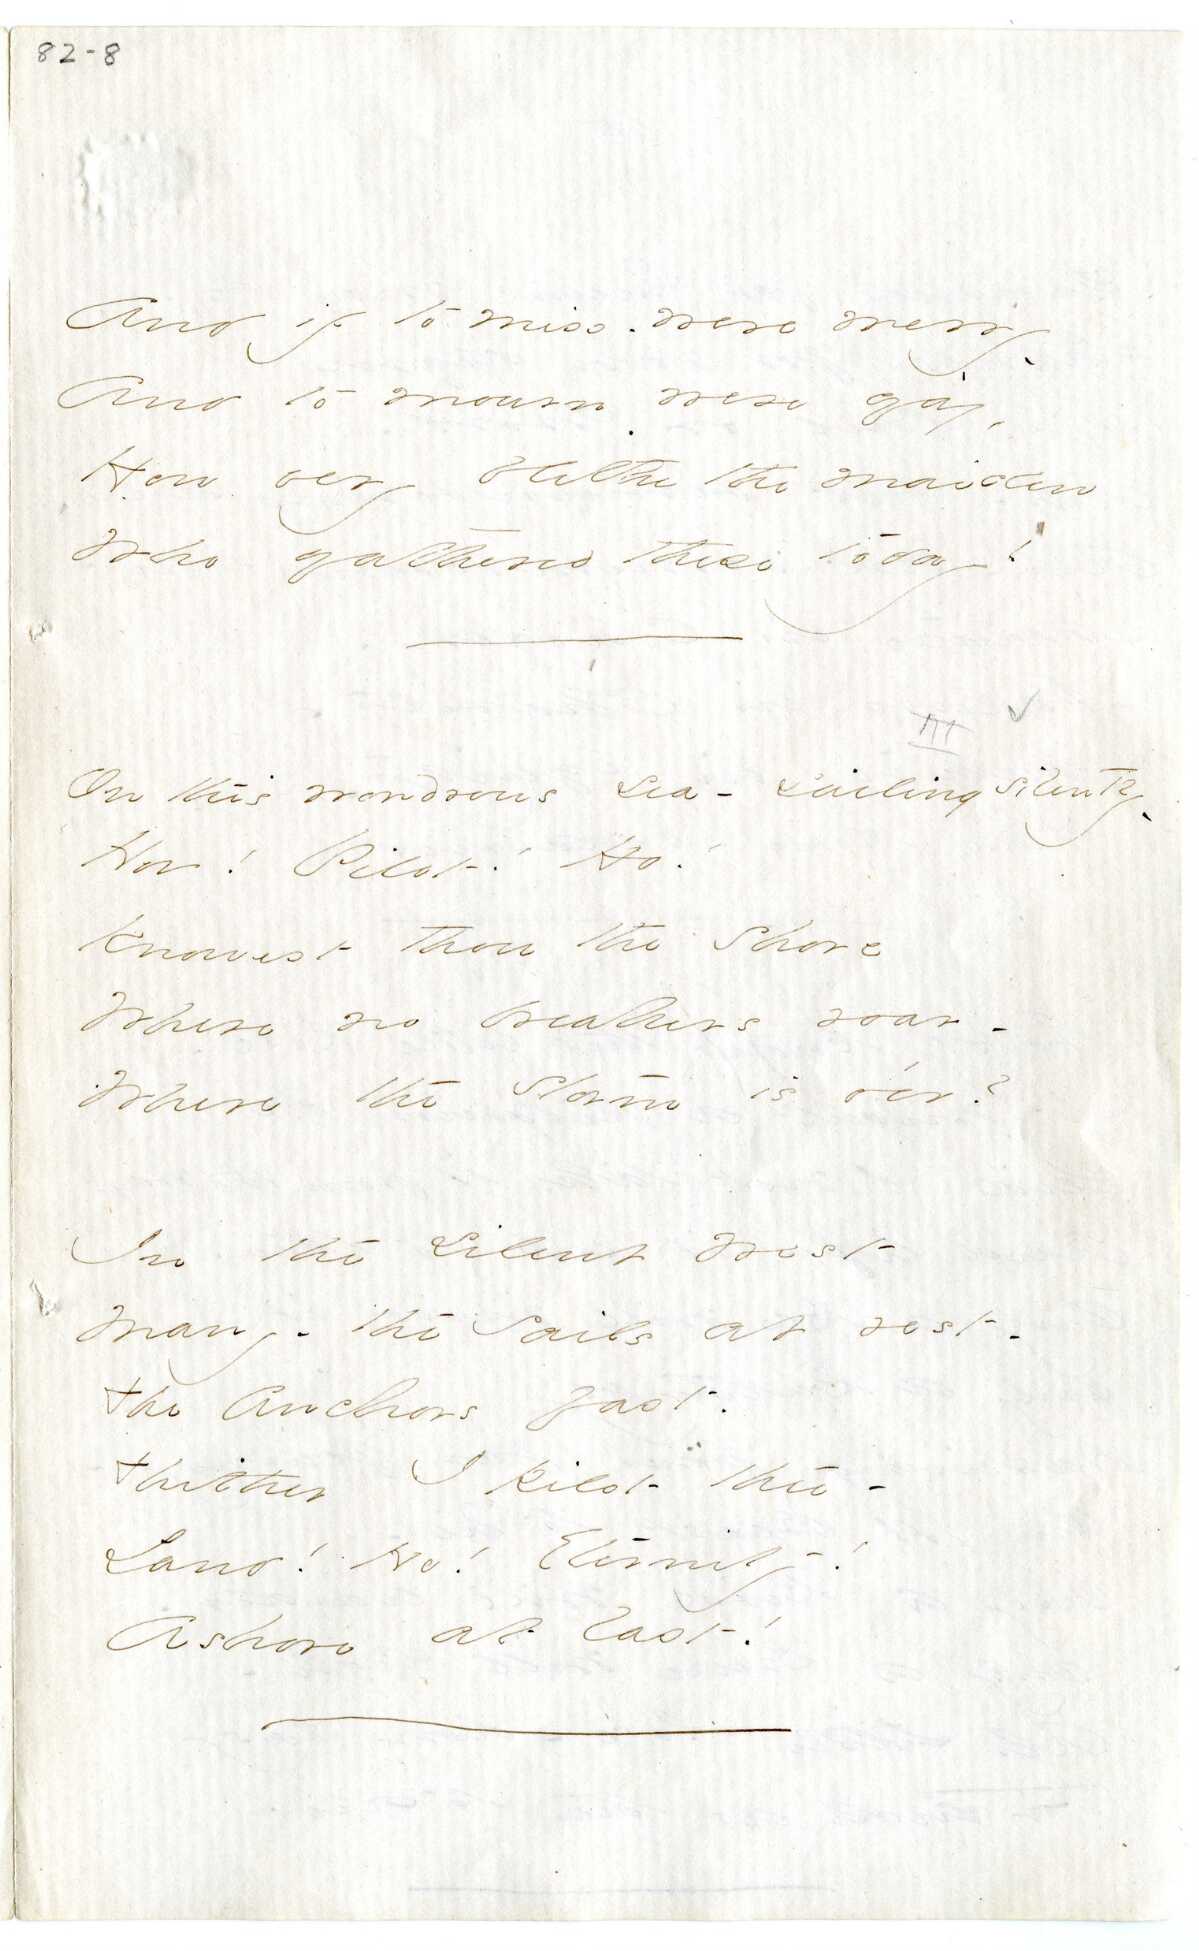 82-8
And if to miss - were merry,
And to mourn were gay,
How very blithe the maiden
Who gathered these today!
III ✓
On this wondrous sea - sailing silently,
Ho! Pilot! Ho!
Knowest thou the shore
Where no breakers roar -
Where the storm is o'er?
In the silent West
Many - the sails at rest -
The anchors fast.
Thither I pilot thee -
Land! Ho! Eternity!
Ashore at last!